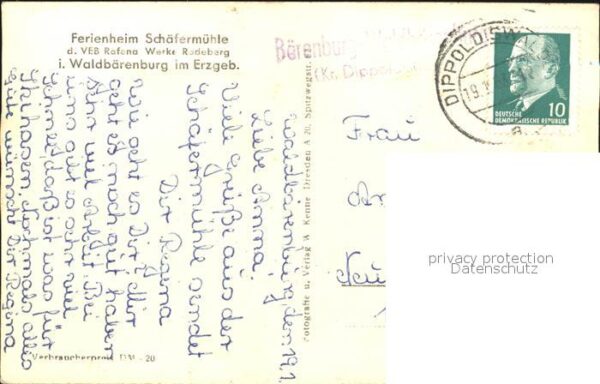 Ferienheim Schäfermühle
d. VEB Rafena Werke Radeberg
i. Waldbärenburg im Erzgeb.
Waldbärenburg, den 19.1.
Liebe Anna!
Viele Grüße aus der
Schäfermühle sendet
Dir Regina
Wie geht es Dir? Mir
geht es noch gut haben
sehr viel Arbeit. Bei
uns gibt es sehr viel
Schnee, daß ist was für
Skihasen. Nochmals alles
Gute wünscht Dir Regina
Verbraucherpreis DM -.20
Fotografie u. Verlag W. Kenne Dresden A 20, Spitzwegstr.
Bärenburg
(Kr. Dippol
DIPPOLDISW
19.1
10
DEUTSCHE
DEMOKRATISCHE REPUBLIK
Frau
An
Neu
privacy protection
Datenschutz